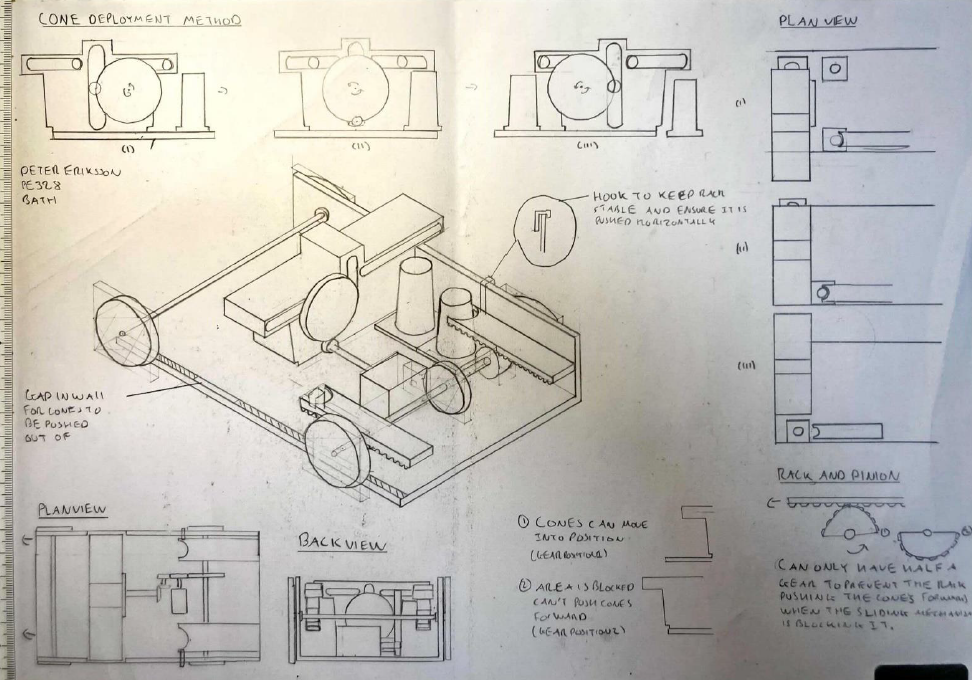 CONE DEPLOYMENT METHOD
(I)
(II)
(III)
PETER ERIKSSON
PE328
BATH
HOOK TO KEEP RACK
STABLE AND ENSURE IT IS
PUSHED HORIZONTALLY
GAP IN WALL
FOR CONES TO
BE PUSHED
OUT OF
PLANVIEW
BACK VIEW
① CONES CAN MOVE
INTO POSITION
(GEAR POSITION 1)
② AREA IS BLOCKED
CAN'T PUSH CONES
FORWARD
(GEAR POSITION 2)
PLAN VIEW
(I)
(II)
(III)
RACK AND PINION
①
②
CAN ONLY HAVE HALF A
GEAR TO PREVENT THE RACK
PUSHING THE CONES FORWARD
WHEN THE SLIDING MECHANISM
IS BLOCKING IT.